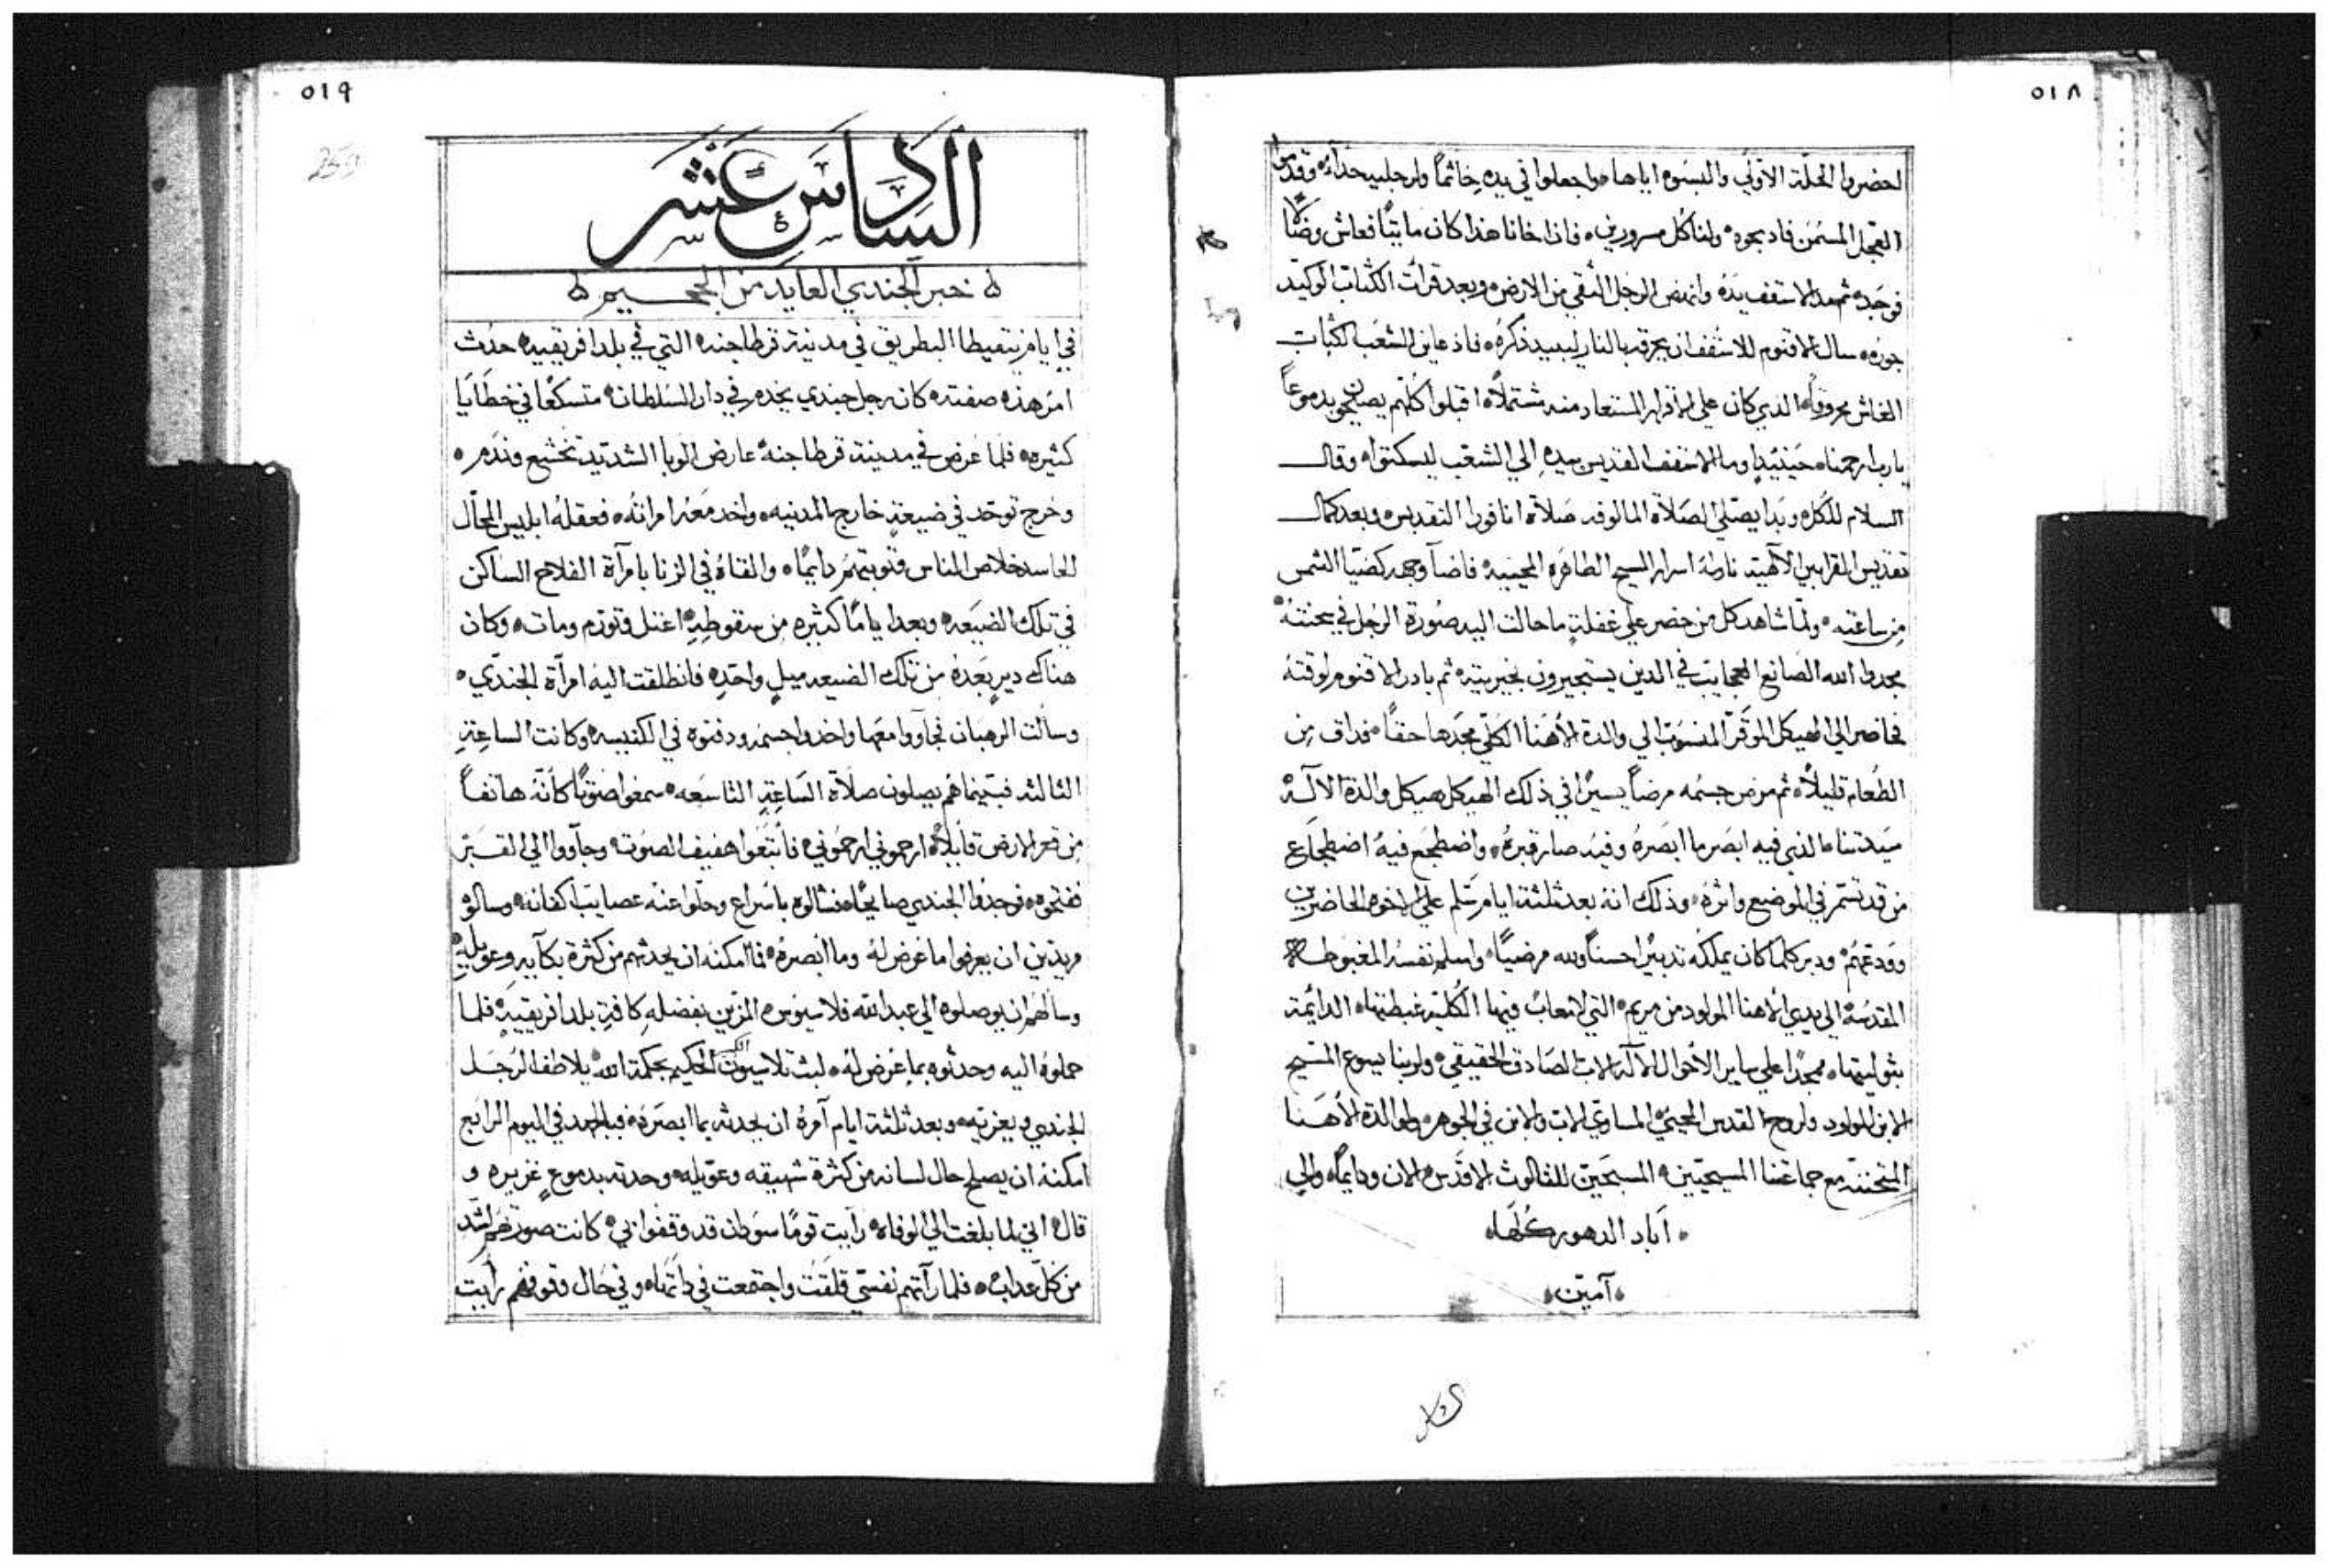 ٥١٨
احضروا الحلّة الاولي والبسوه اياها واجعلوا في يده خاتماً ولرجليه حذاءً وقدموا
العجل المسمّن فاذبحوه ولناكل مسرورين فاذا اخانا هذا كان مايتًا فعاش وضالاً
فوجد ثم مد الاسقف يده وانهض الرجل التقي من الارض وبعد قرأت الكتاب الوكيد
جوره سال الاقنوم للاسقف ان يحرقه بالنار ليبيد ذكره فاذ عاين الشعب الكتاب
الغاش محروقاً الذي كان على الاقرار المستعاد منه مشتملاً اقبلوا كلهم يصيحون بدموعاً
يارب ارحمنا حينيدٍ اوما الاسقف القديس بيده الي الشعب ليسكتوا وقال
السلام للكل وبدا يصلي الصلاة المالوفه صلاة انافورا التقديس وبعد كمال
تقديس القرابين الالهيه ناوله اسرار المسيح الطاهره المحييه فاضآ وجهه كضيا الشمس
من ساعته ولمّا شاهد كل من حضر علي غفلةٍ ما حالت اليه صورة الرجل في سحنته
مجدوا الله الصانع العجايب في الذين يستجيرون بخيريته ثم بادر الاقنوم لوقته
فحاضر الي الهيكل الموقّر المنسوب الي والدة الاهنا الكلي مجدها حقاً فذاق من
الطعام قليلاً ثم مرض جسمه مرضاً يسيرًا في ذلك الهيكل هيكل والدة الاله
سيدتنا الذي فيه ابصر ما ابصره وفيه صار قبره واضطجع فيه اضطجاع
من قد تسمّر في الموضع واثره وذلك انه بعد ثلثة ايام سلم علي الاخوه الحاضرين
وودعهم ودبر كلما كان يملكه تدبيرًا حسناً ولله مرضيًا واسلم نفسه المغبوطه
المقدسة الي يدي الاهنا المولود من مريم التي لا تعاب فيها الكلية غبطتها الدائمة
بتوليتها ممجدًا علي ساير الاحوال الاله الاب الصادق الحقيقي ولربنا يسوع المسيح
الابن المولود ولروح القدس المحيي المساوي الاب والابن في الجوهر ولوالدة الاهنا
مع جماعتنا المسيحيين المسبحين للثالوث الاقدس الان ودايمًا والي
اباد الدهور كلها
آمين
٥١٩
259
السادس عشر
خبر الجندي العايد من الجحيم
في ايام نيقيطا البطريق في مدينة قرطاجنه التي في بلد افريقيه حدث
امر هذه صفته كان رجل جندي يخدم في دار السلطان متسكعًا في خطايا
كثيره فلما عرض في مدينة قرطاجنة عارض الوبا الشديد تخشع وندم
وخرج توحد في ضيعةٍ خارج المدينه واخد معه امراته فعقله ابليس المحال
الحاسد خلاص الناس وتوبتهم دايمًا والقاه في الزنا بامرآة الفلاح الساكن
في تلك الضيعه وبعد ايامًا كثيره من سقوطه اعتل وتورم ومات وكان
هناك دير بعده من تلك الضيعه ميلٍ واحدٍ فانطلقت اليه امرآة الجندي
وسألت الرهبان فجآووا معها واخدوا جسمه ودفنوه في الكنيسه وكانت الساعة
الثالثه فبينما هم يصلون صلاة الساعة التاسعه سمعوا صوتًا كأنّه هاتفاً
من قعر الارض قايلاً ارحموني ارحموني فأتبعوا هفيف الصوت وجآووا الي القبر
ففتحوه فوجدوا الجندي صايحًا فشالوه باسراع وحلّوا عنه عصايب اكفانه وسالوه
مريدين ان يعرفوا ما عرض له وما ابصره فما امكنه ان يحدثهم من كثرة بكآيه وعويله
وسألهم ان يوصلوه الي عبد الله فلاسيوس المزين بفضله كافة بلد افريقيه فلما
حملوه اليه وحدثوه بما عرض له لبث تلاسيوس الحكيم بحكمة الله يلاطف الرجل
الجندي ويعزيه وبعد ثلثة ايام آمره ان يحدثه بما ابصره فبالجهد في اليوم الرابع
امكنه ان يصلح حال لسانه من كثرة شهيقه وعويله وحدثه بدموعٍ غزيره و
قال اني لما بلغت الي الوفاة رأيت قومًا سودان قد وقفوا بي كانت صورتهم اشد
من كل عداب فلما رآتهم نفسي قلقت واجتمعت في داتها وفي حال وقوفهم رأيت